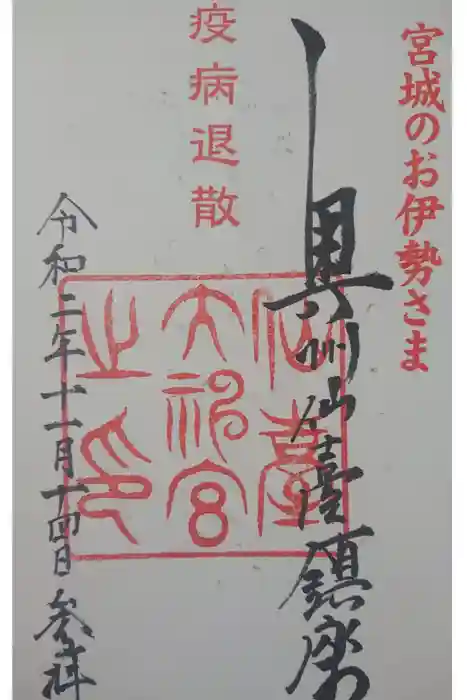 宮城のお伊勢さま
奥州仙臺鎮座
疫病退散
仙臺
大神宮
之印
令和二年十一月十四日参拝